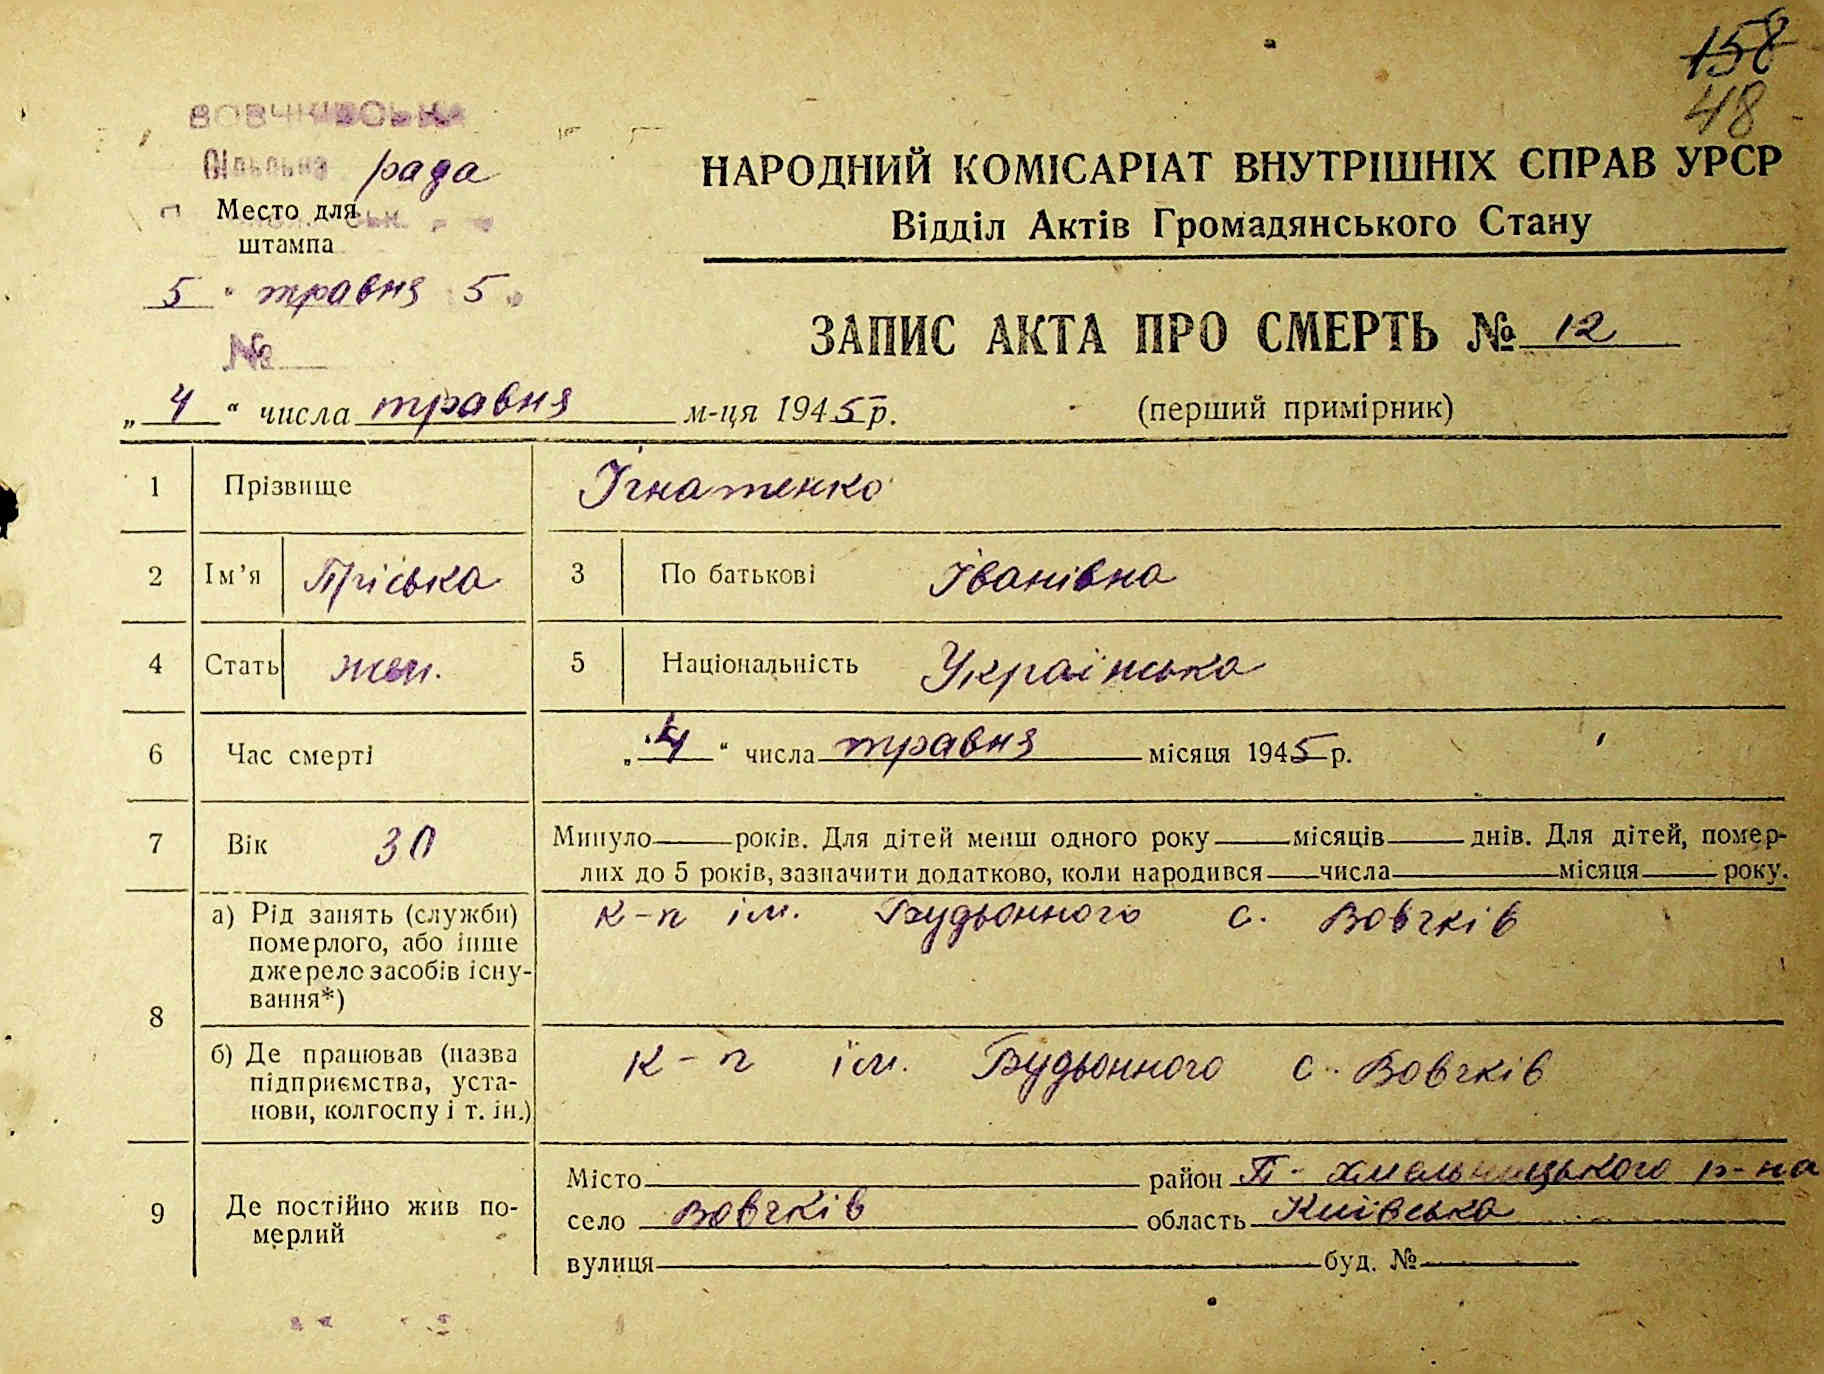 158
48
ВОВЧКІВСЬКА
Сільська рада
Место для
штампа
НАРОДНИЙ КОМІСАРІАТ ВНУТРІШНІХ СПРАВ УРСР
Відділ Актів Громадянського Стану
5 " травня 5
№
ЗАПИС АКТА ПРО СМЕРТЬ № 12
„ 4 “ числа травня м-ця 1945 р. (перший примірник)
1 Прізвище Ігнатенко
2 Ім’я Пріська 3 По батькові Іванівна
4 Стать жен. 5 Національність Українська
6 Час смерті „ 4 “ числа травня місяця 1945 р.
7 Вік 30 Минуло років. Для дітей менш одного року місяців днів. Для дітей, помер-
лих до 5 років, зазначити додатково, коли народився числа місяця року.
8 а) Рід занять (служби)
померлого, або інше
джерело засобів існу-
вання*)
к-п ім. Будьонного с. Вовчків
б) Де працював (назва
підприємства, уста-
нови, колгоспу і т. ін.)
к-п ім. Будьонного с. Вовчків
9 Де постійно жив по-
мерлий
Місто район П-хмельницького р-на
село Вовчків область Київська
вулиця буд. №